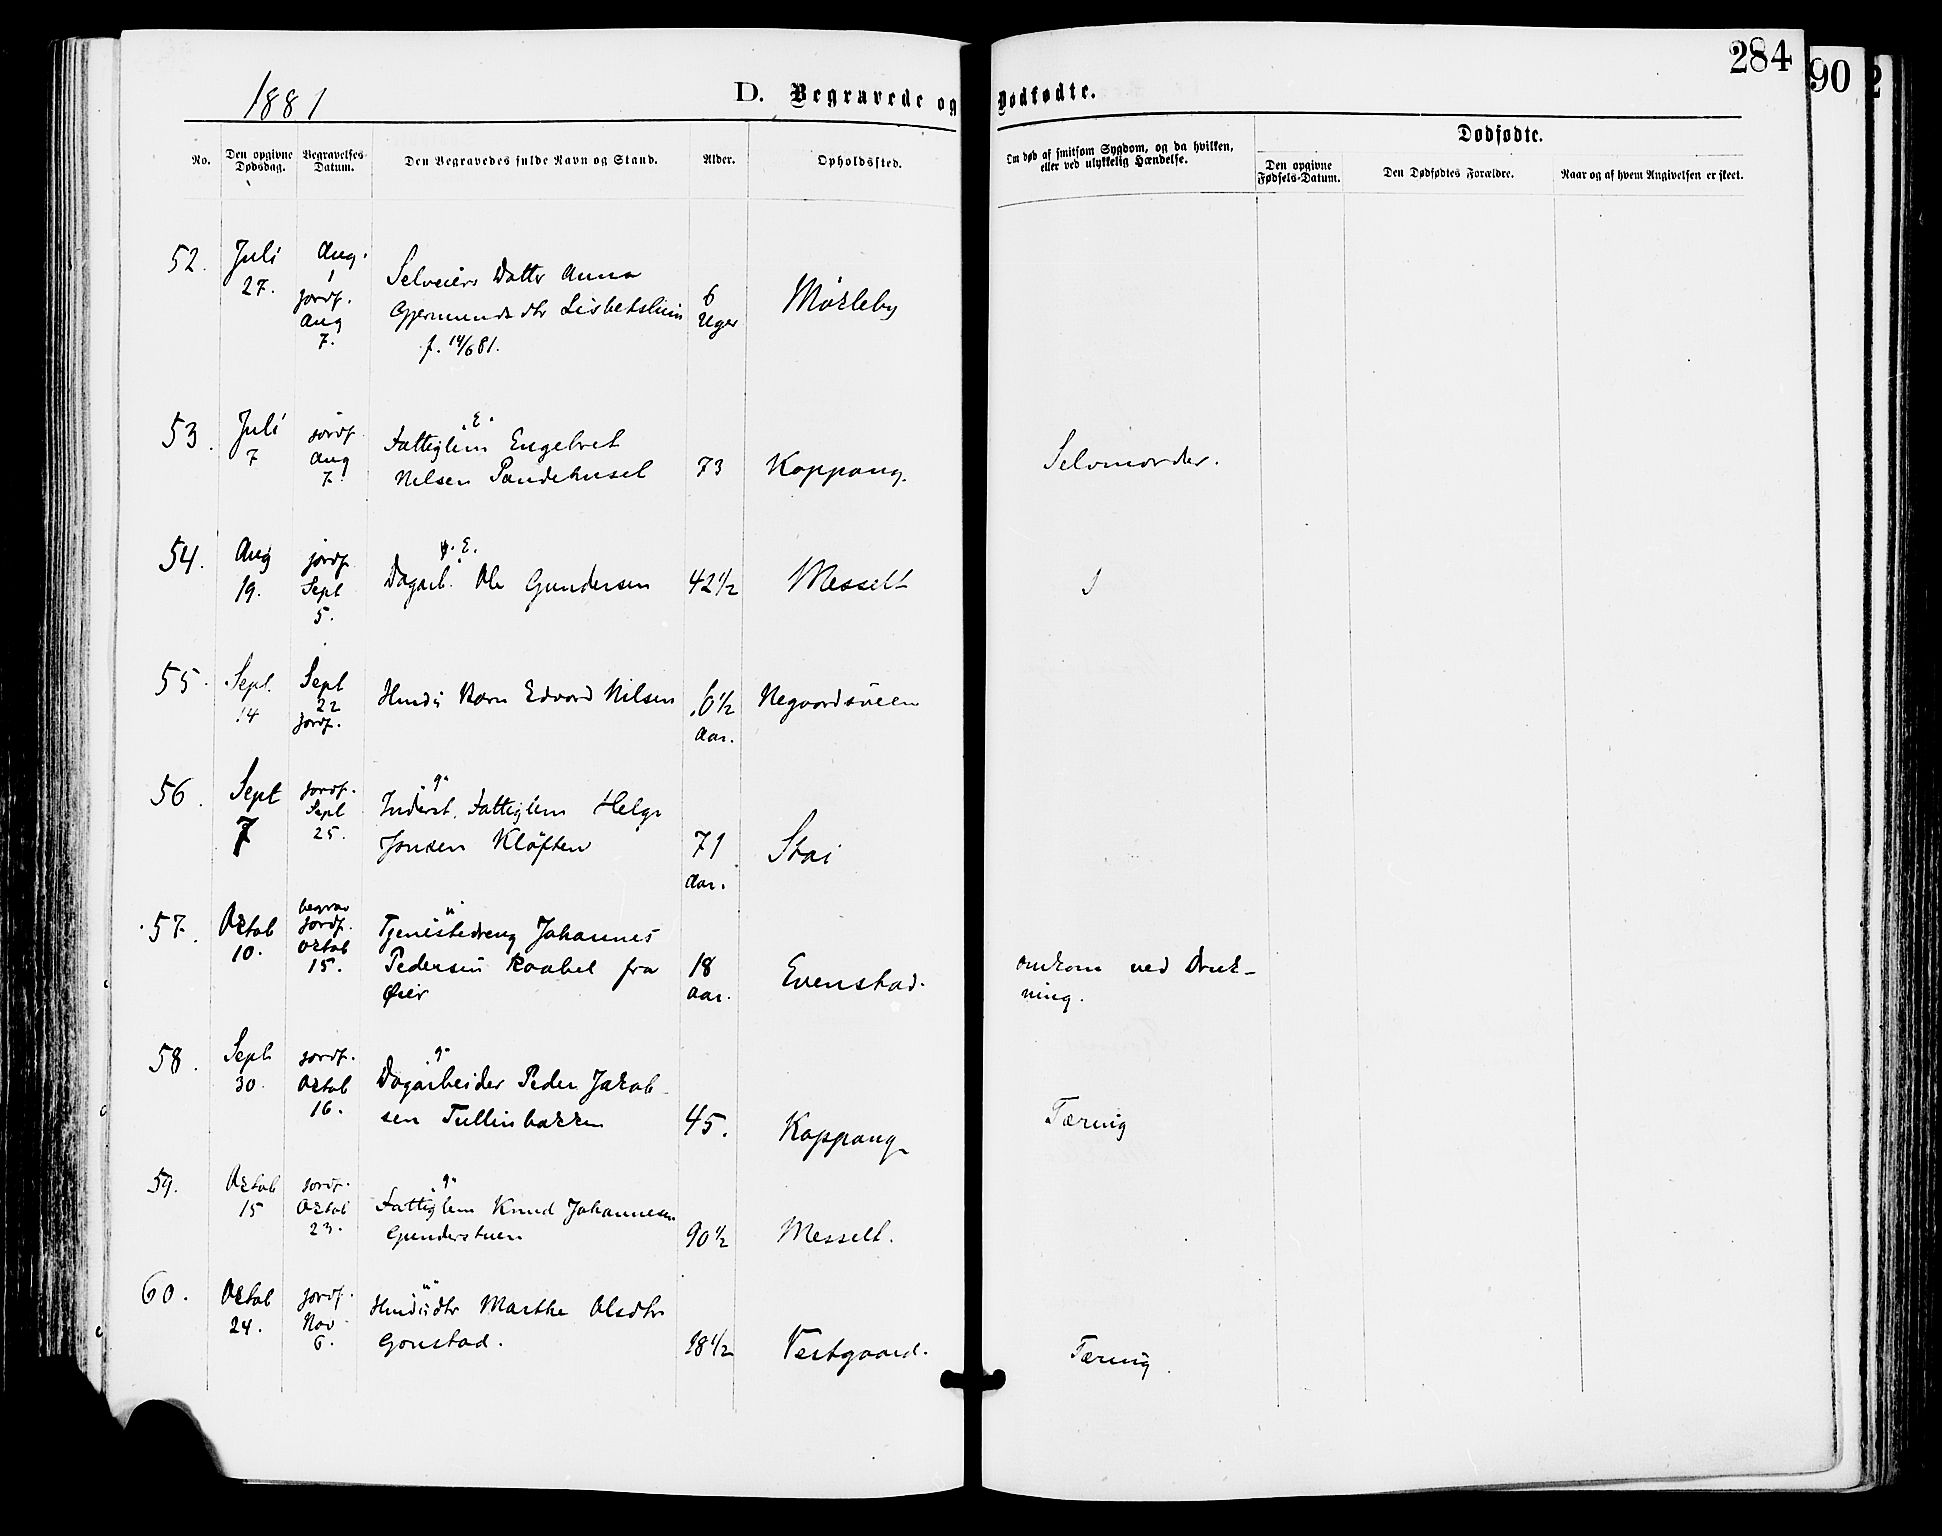 284
90
2
1881
D. Begravede og Dødfødte.
No.
Den opgivne Dødsdag.
Begravelses-Datum.
Den Begravedes fulde Navn og Stand.
Alder.
Opholdssted.
Om død af smitsom Sygdom, og da hvilken,
eller ved ulykkelig Hændelse.
Dødfødte.
Den opgivne Fødsels-Datum.
Den Dødfødtes Forældre.
Naar og af hvem Angivelsen er skeet.
52.
Juli
27.
Aug.
1
jordf.
Aug
7.
Selveiers Datter Anna
Gjermunds dtr Lisbetshim
f. 14/6 81.
6
Uger
Møkleby
53.
Juli
7
jordf.
Aug
7.
"E"
Fattiglem Engebret
Nilsen Sandehuset
73
Koppang.
Selvmorder.
54.
Aug
19.
jordf
Sept
5.
E.
Dagarb. Ole Gundersen
42 1/2
Messelt
55.
Sept.
14
Sept
22
jordf.
Husm. Barn Edvard Nilsen
6 1/2
Aar.
Negaardsveen
56.
Sept
7
jordf.
Sept
25.
"g"
Inderst. Fattiglem Helge
Jonsen Kløften
71
Aar.
Stai
57.
Oktob
10.
begrav
jordf.
Oktob
15.
"u"
Tjenestedreng Johannes
Pedersen Raabel fra
Øier
18
aar.
Evenstad.
omkom ved Druk-
ning.
58.
Sept
30.
jordf.
Oktob
16.
"g"
Dagarbeider Peder Jakob-
sen Tullinbakken
45.
Koppang
Tæring
59.
Oktob
15
jordf.
Oktob
23.
"g"
Fattiglem Knud Johannesen
Gunderstuen
90 1/2
Messelt.
60.
Oktob
24.
jordf.
Nov
6.
"u"
Husm.dtr Marthe Olsdtr
Gonstad.
18 1/2
Vestgaard.
Tæring.